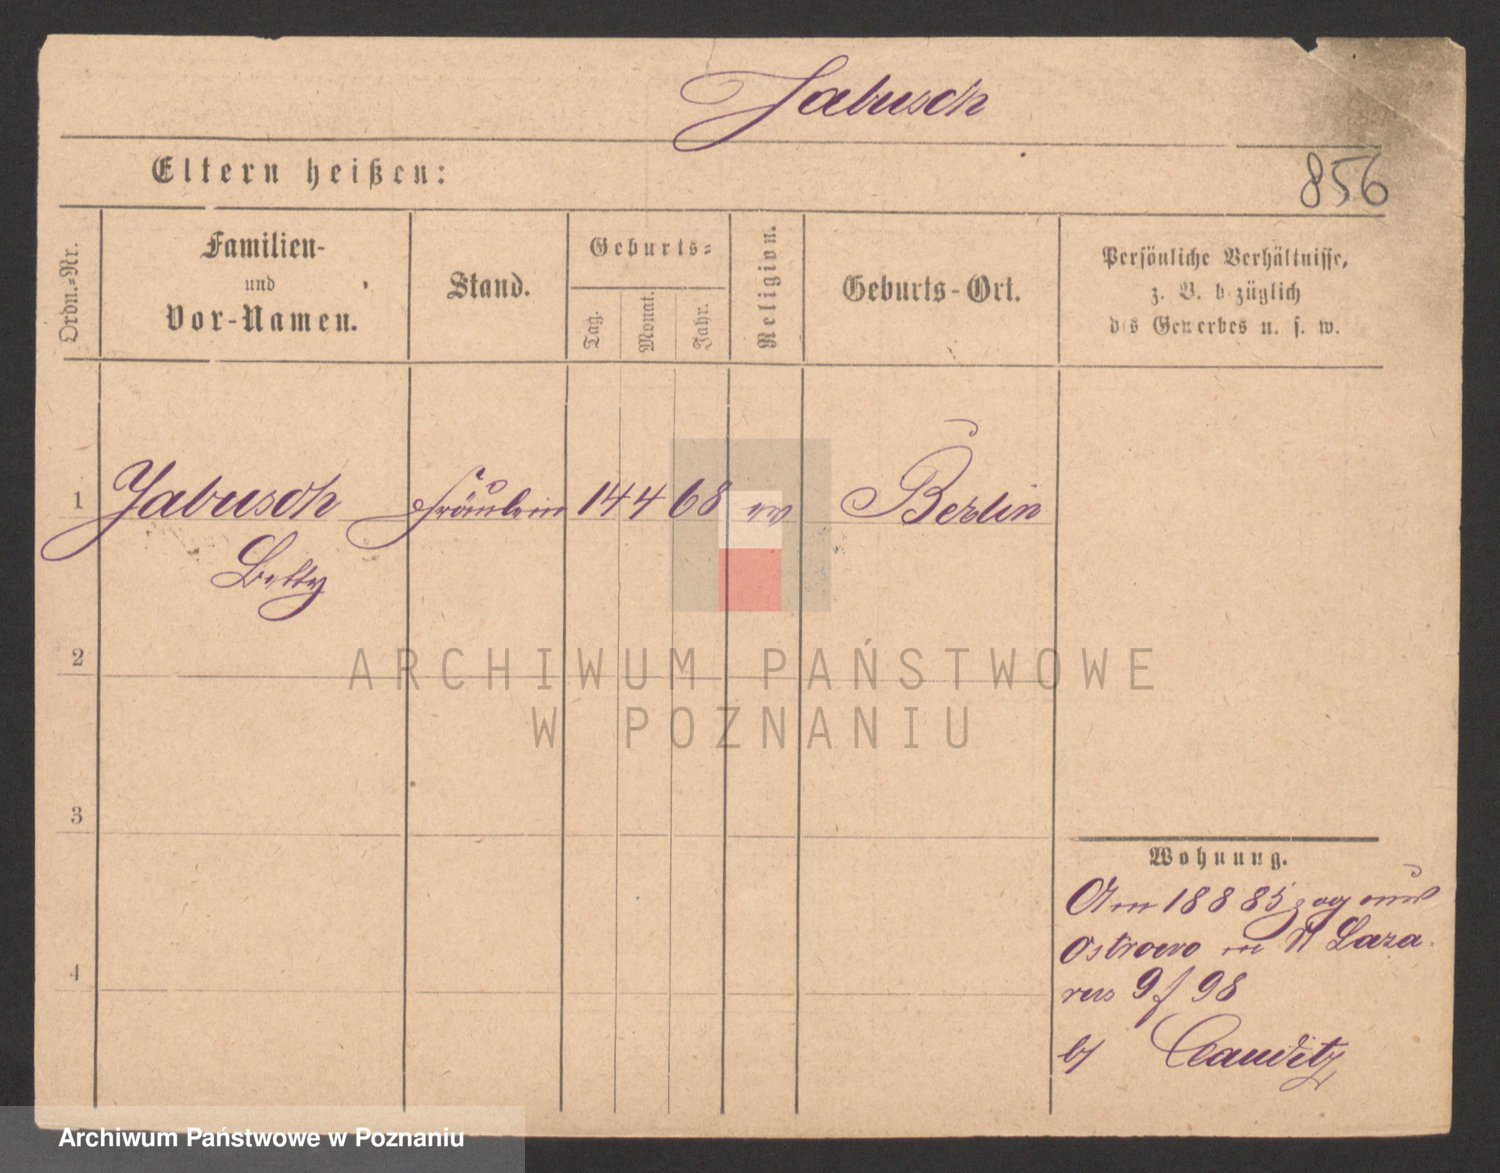 Jabusch
Eltern heißen:
856
Ordn.-Nr.
Familien-
und
Vor-Namen.
Stand.
Geburts-
Tag.
Monat.
Jahr.
Religion.
Geburts-Ort.
Persönliche Verhältnisse,
z. B. bezüglich
des Gewerbes u. s. w.
1 Jabusch Fräulein 14 4 68 ev Berlin
Betty
2
3
4
Wohnung.
Am 18 8 85 zog aus
Ostrowo in St Laza-
rus 9 f 98
b/
ARCHIWUM PAŃSTWOWE
W POZNANIU
Archiwum Państwowe w Poznaniu